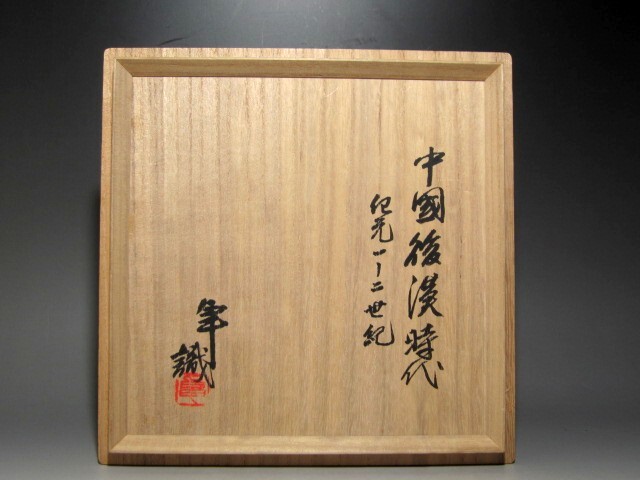 中國後漢時代
紀元一ー二世紀
識